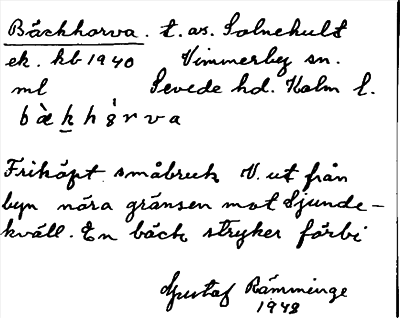 Bäckhorva. t. av. Solnehult
ek. kb 1940 Vimmerby sn.
ml Sevede hd. Kalm l.
b ä k h o r v a
Friköpt småbruk V. ut från
byn nära gränsen mot Sjunde-
kväll. En bäck stryker förbi
Gustaf Rämminge
1948